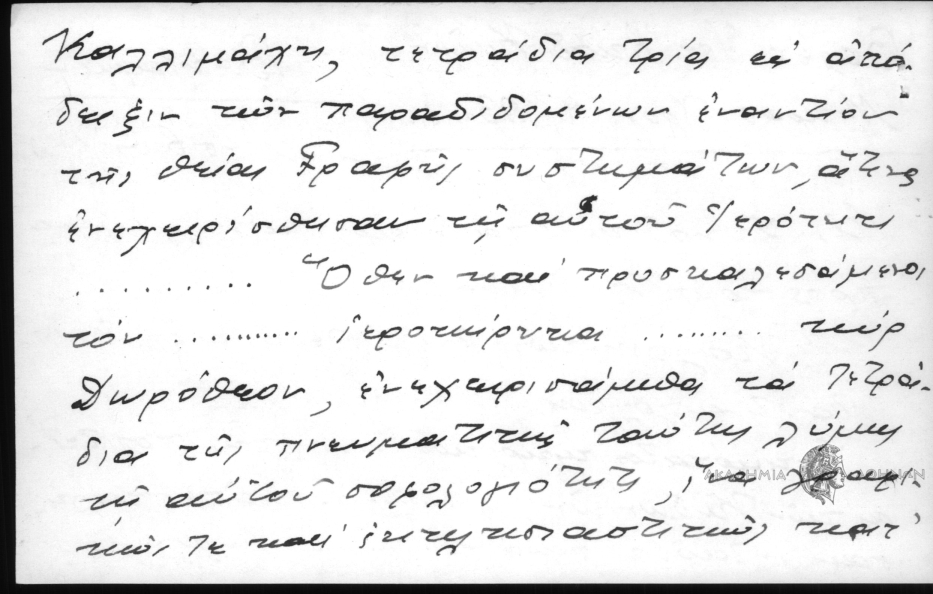 Καλλιμάχη, τετράδια τρία εἰς ἀπό-
δειξιν τῶν παραδιδομένων ἐναντίον
τῆς θείας Γραφῆς συστημάτων, ἅτινα
ἐνεχειρίσθησαν τῇ αὐτοῦ Ἱερότητι
.......... Ὅθεν καί προσκαλεσάμενοι
τόν .......... ἱεροκήρυκα ........ κύρ
Δωρόθεον, ἐνεχειρισάμεθα τά τετρά-
δια τῆς πνευματικῆς ταύτης λύμης
τῇ αὐτοῦ σοφολογιότητι, ἵνα γραφι-
κῶς τε καί ἐκκλησιαστικῶς κατ'
ΑΚΑΔΗΜΙΑ ΑΘΗΝΩΝ